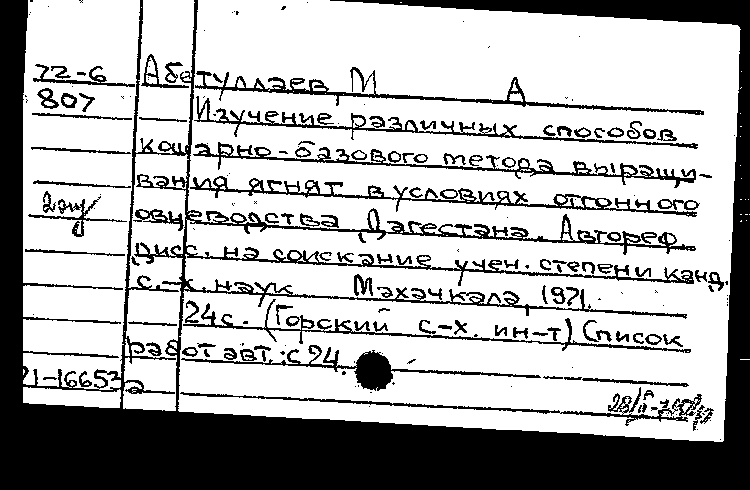 72-6 Абетуллаев, М А
807 Изучение различных способов
кошарно-базового метода выращи-
вания ягнят в условиях отгонного
2 эку овцеводства Дагестана. Автореф.
дисс. на соискание учен. степени канд.
с.-х. наук Махачкала, 1971.
24 с. (Горский с.-х. ин-т) Список
работ авт.: с 24.
71-16653а